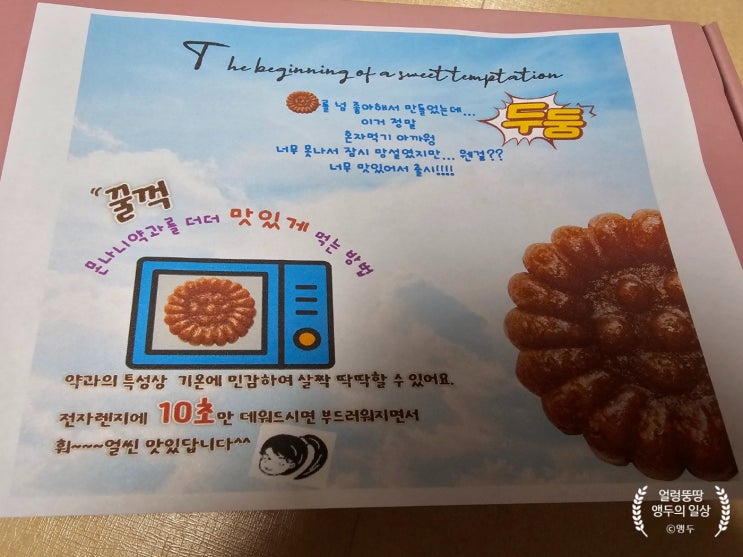 The beginning of a sweet temptation
를 넘 좋아해서 만들었는데...
이거 정말
혼자먹기 아까웡
너무 못나서 잠시 망설였지만... 웬걸??
너무 맛있어서 출시!!!!
두둥
"꿀꺽
먼나니약과를 더더 맛있게 먹는 방법
약과의 특성상 기온에 민감하여 살짝 딱딱할 수 있어요.
전자렌지에 10초만 데워드시면 부드러워지면서
훠~~~얼씬 맛있답니다^^
얼렁뚱땅
앵두의 일상
©앵두